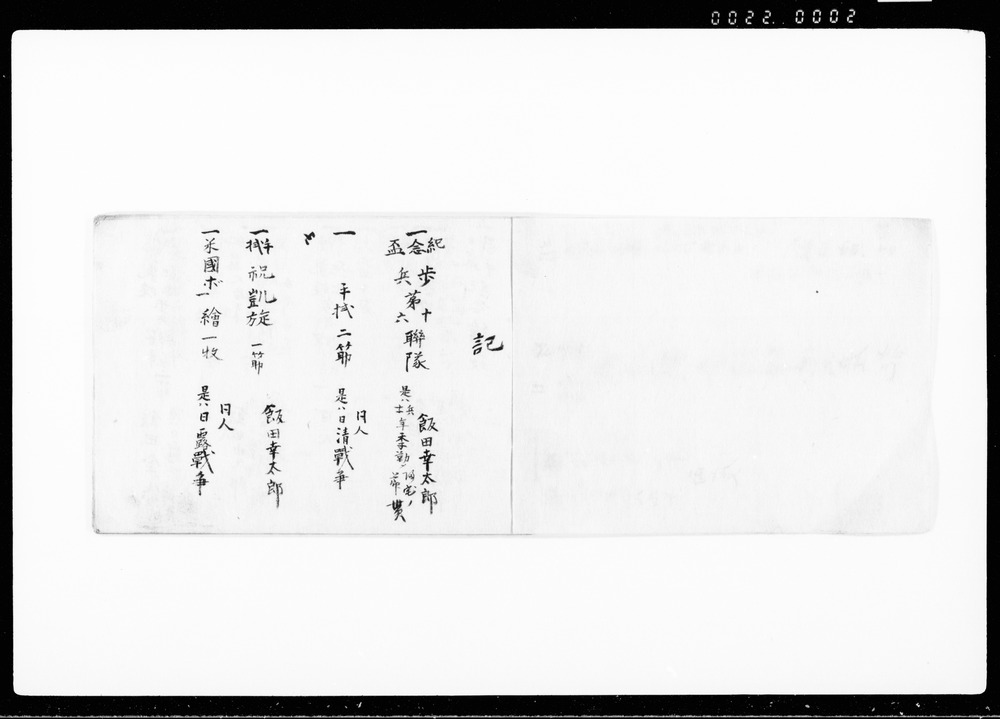 0022 0002
記
一紀念盃 歩兵第十六聯隊 飯田幸太郎
是ハ兵士年季勤
一 手拭 二筋 同人
是ハ日清戦争
一手拭 祝凱旋 一筋 飯田幸太郎
一米國ボー繪一枚 同人
是ハ日露戦争